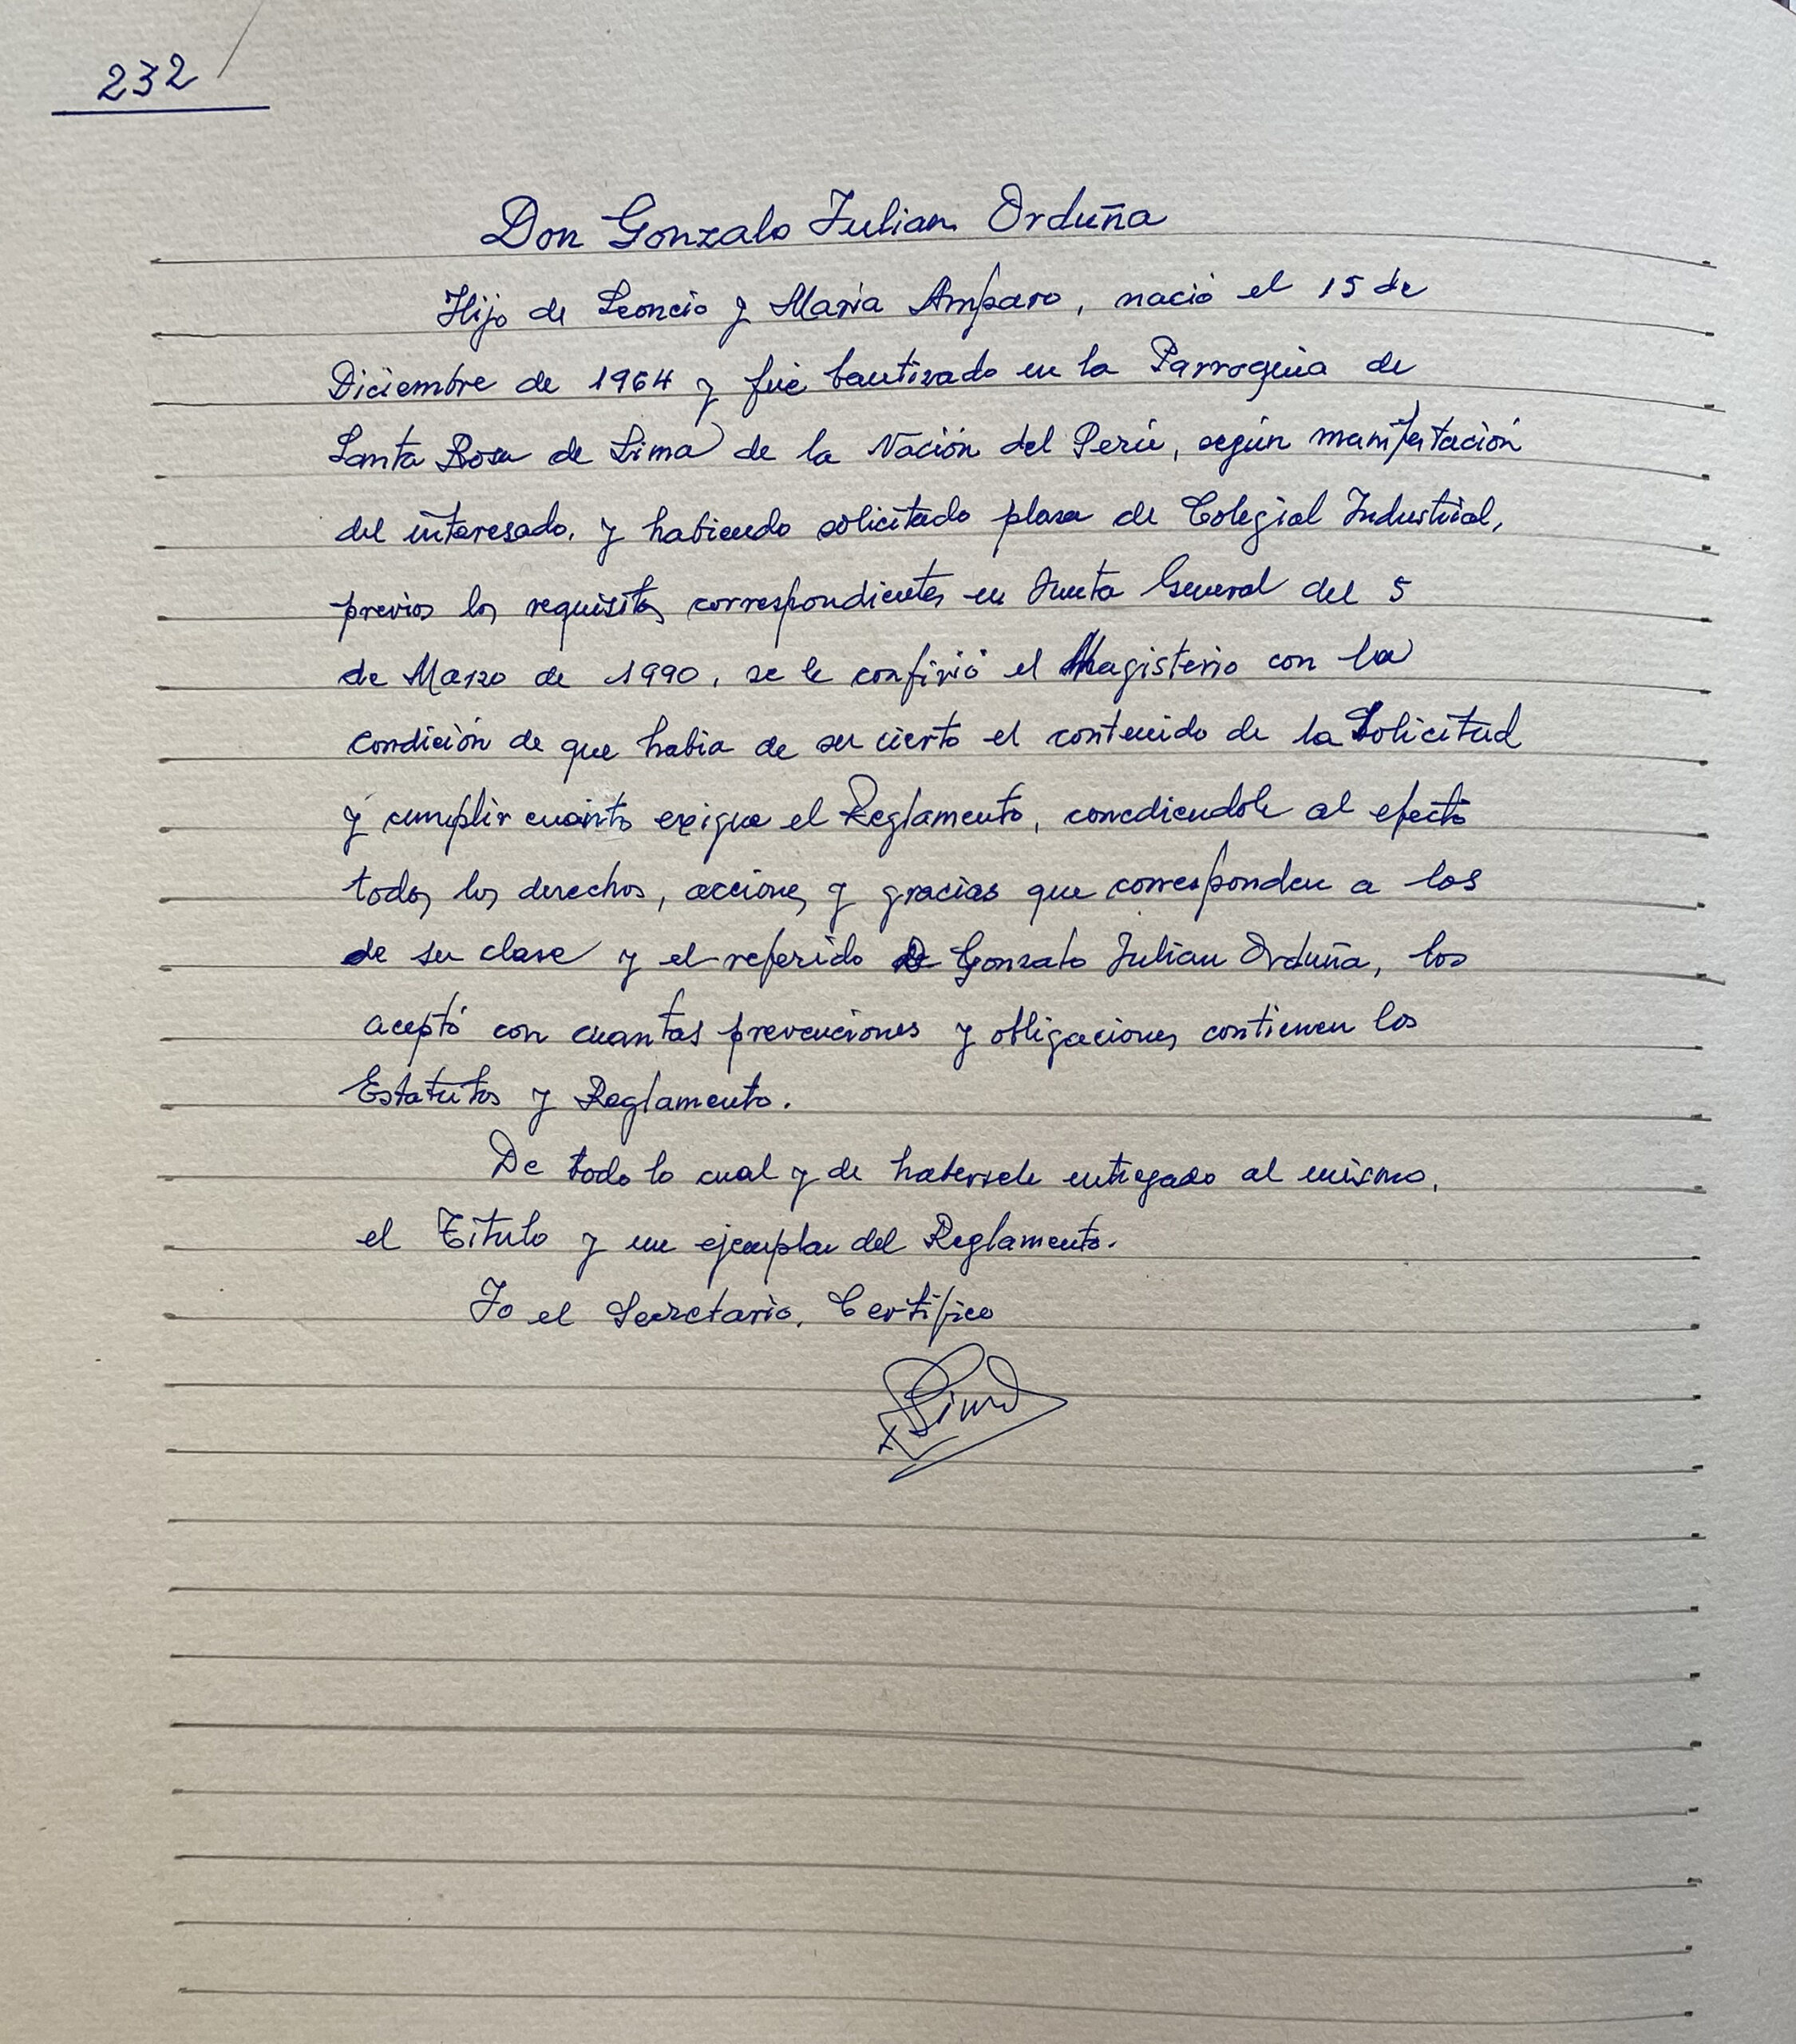 232
Don Gonzalo Julian Orduña
Hijo de Leoncio y Maria Amparo, nació el 15 de
Diciembre de 1964 y fué bautizado en la Parroquia de
Santa Rosa de Lima de la Nación del Perú, según manifestación
del interesado, y habiendo solicitado plaza de Colegial Industrial,
previos los requisitos correspondientes en Junta General del 5
de Marzo de 1990, se le confirió el Magisterio con la
condición de que habia de ser cierto el contenido de la Solicitud
y cumplir cuánto exigue el Reglamento, concediendole al efecto
todos los derechos, acciones y gracias que corresponden a los
de su clase y el referido D Gonzalo Julian Orduña, los
aceptó con cuantas prevenciones y obligaciones contienen los
Estatutos y Reglamento.
De todo lo cual y de habersele entregado al mismo,
el Título y un ejemplar del Reglamento.
Yo el Secretario, Certifico